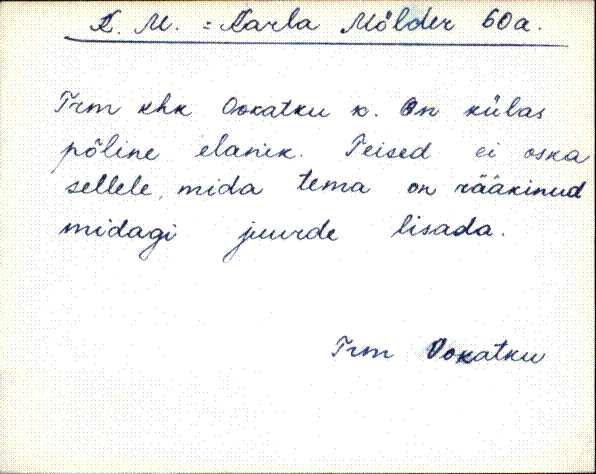 K. M. = Karla Mölder 60a.
Trm khk Ookatku k. On külas
põline elanik. Teised ei oska
sellele, mida tema on rääkinud
midagi juurde lisada.
Trm Ookatku